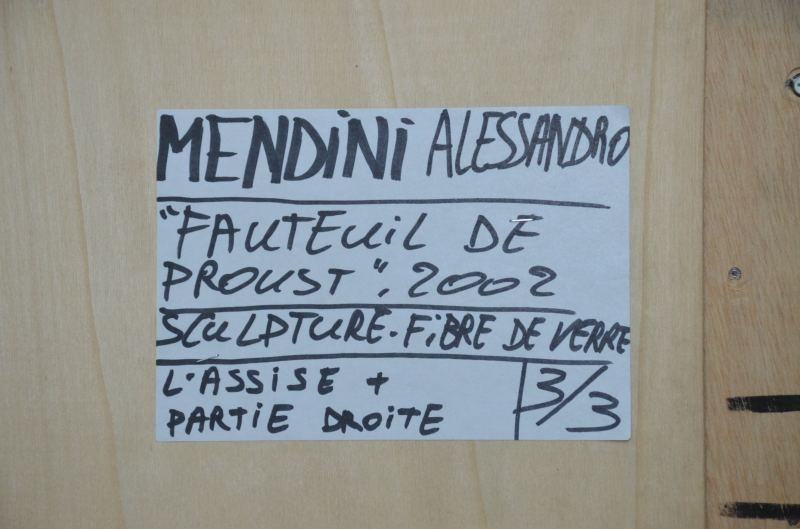 MENDINI ALESSANDRO
"FAUTEUIL DE
PROUST". 2002
SCULPTURE. FIBRE DE VERRE
L'ASSISE +
PARTIE DROITE
3/3